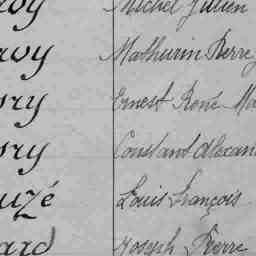 voy Michel Julien
rvoy Mathurin Pierre
ory Ernest René Ma
ory Constant Alexan
uzé Louis François
ard Joseph Pierre